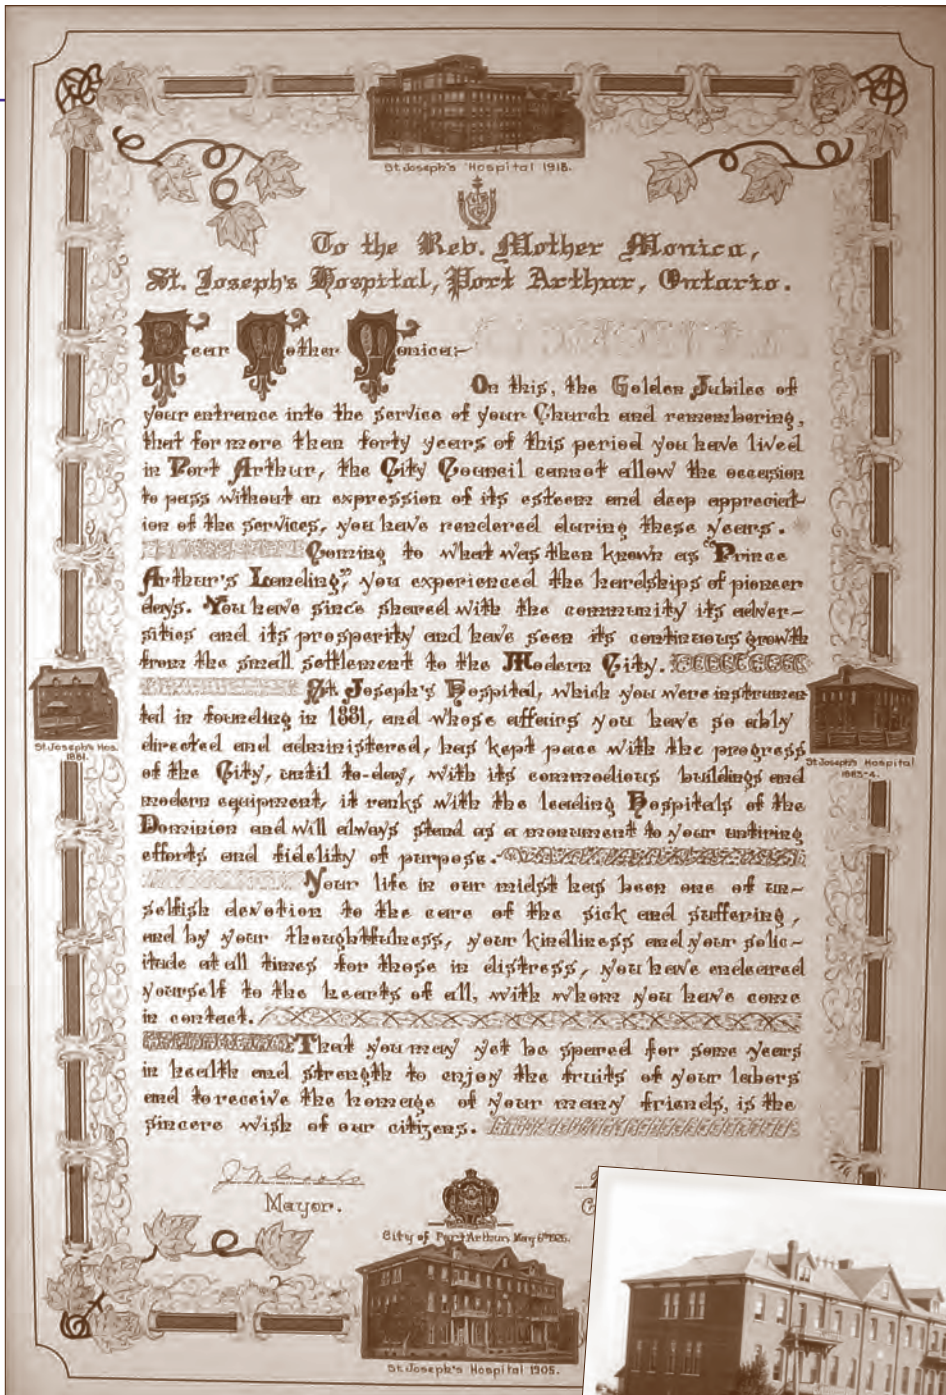 St. Joseph's Hospital 1918.
To the Rev. Mother Monica,
St. Joseph's Hospital, Port Arthur, Ontario.
Dear Mother Monica:-
On this, the Golden Jubilee of
your entrance into the service of your Church and remembering,
that for more than forty years of this period you have lived
in Port Arthur, the City Council cannot allow the occasion
to pass without an expression of its esteem and deep appreciat-
ion of the services, you have rendered during these years.
Coming to what was then known as "Prince
Arthur's Landing," you experienced the hardships of pioneer
days. You have since shared with the community its adver-
sities and its prosperity and have seen its continuous growth
from the small settlement to the Modern City.
St. Joseph's Hospital, which you were instrumen
tal in founding in 1881, and whose affairs you have so ably
directed and administered, has kept pace with the progress
of the City, until to-day, with its commodious buildings and
modern equipment, it ranks with the leading Hospitals of the
Dominion and will always stand as a monument to your untiring
efforts and fidelity of purpose.
Your life in our midst has been one of un-
selfish devotion to the care of the sick and suffering,
and by your thoughtfulness, your kindliness and your solic-
itude at all times for those in distress, you have endeared
yourself to the hearts of all, with whom you have come
in contact.
That you may yet be spared for some years
in health and strength to enjoy the fruits of your labors
and to receive the homage of your many friends, is the
sincere wish of our citizens.
St. Joseph's Hos.
1881.
St. Joseph's Hospital
1883-4.
Mayor.
City of Port Arthur, May 6th 1926.
St. Joseph's Hospital 1905.